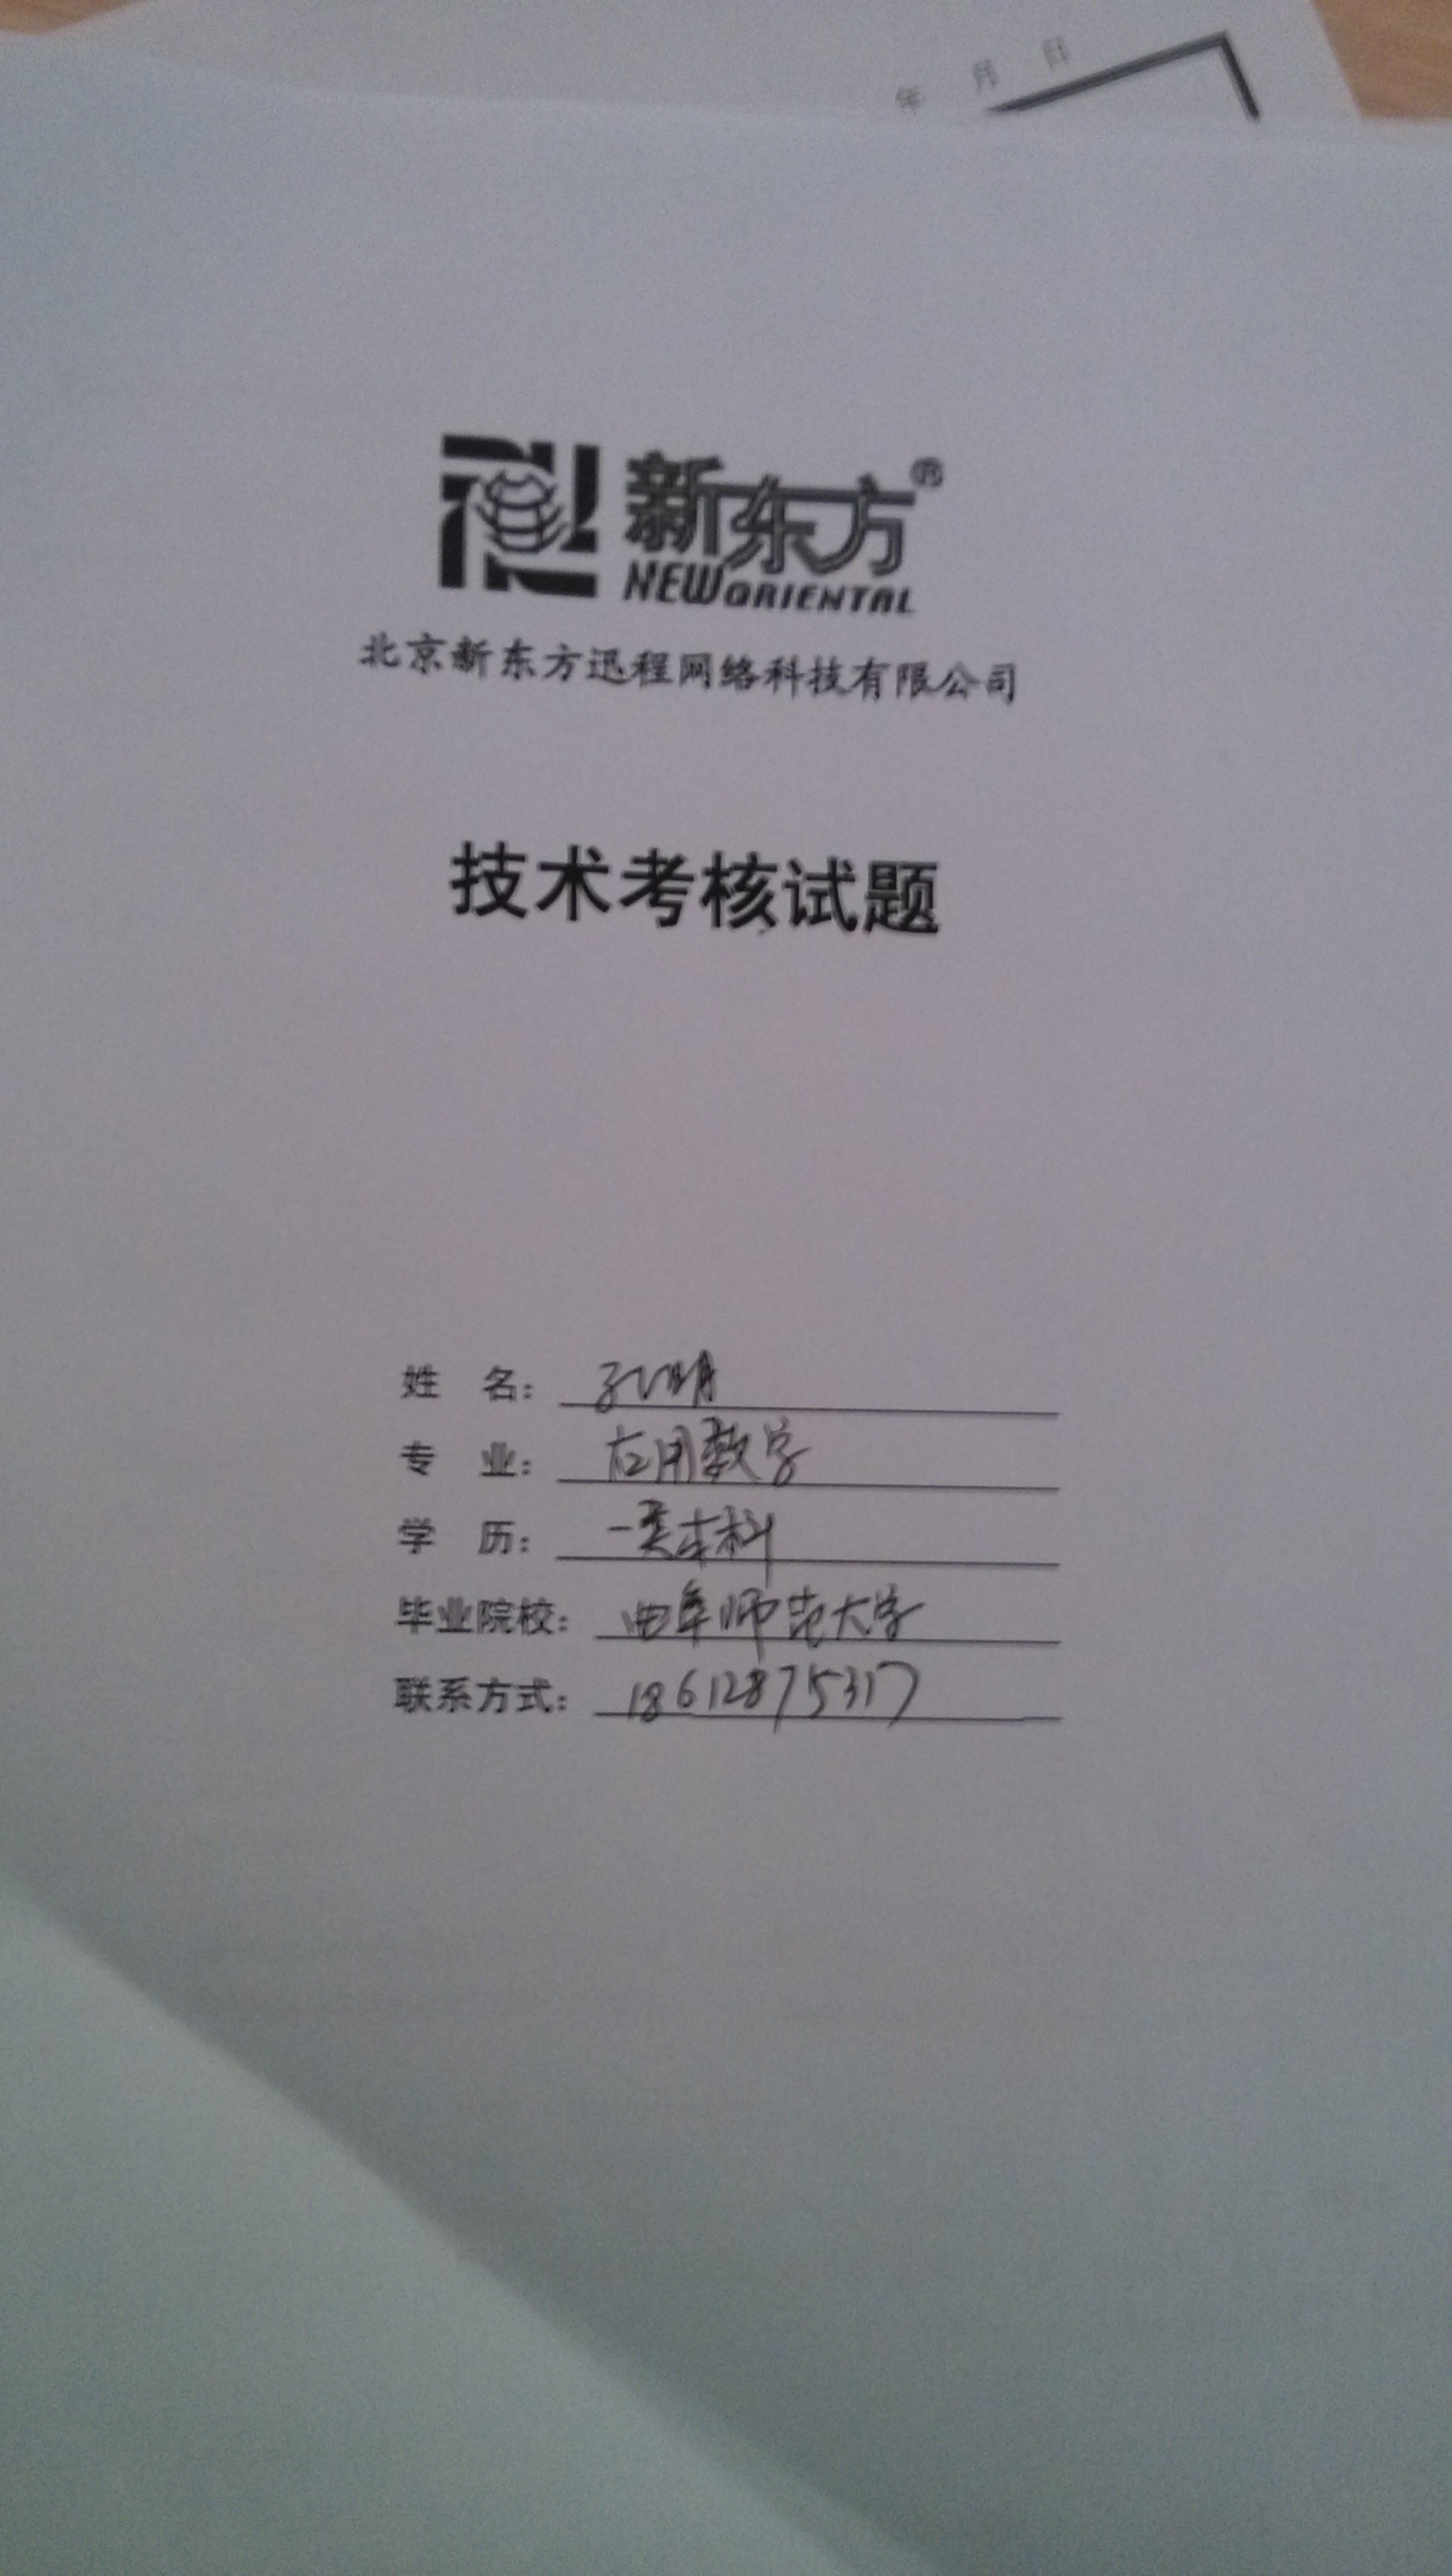 年 月 日
新东方®
NEW ORIENTAL
北京新东方迅程网络科技有限公司
技术考核试题
姓 名： 孔明
专 业： 应用数学
学 历： 一类本科
毕业院校： 曲阜师范大学
联系方式： 18612875317